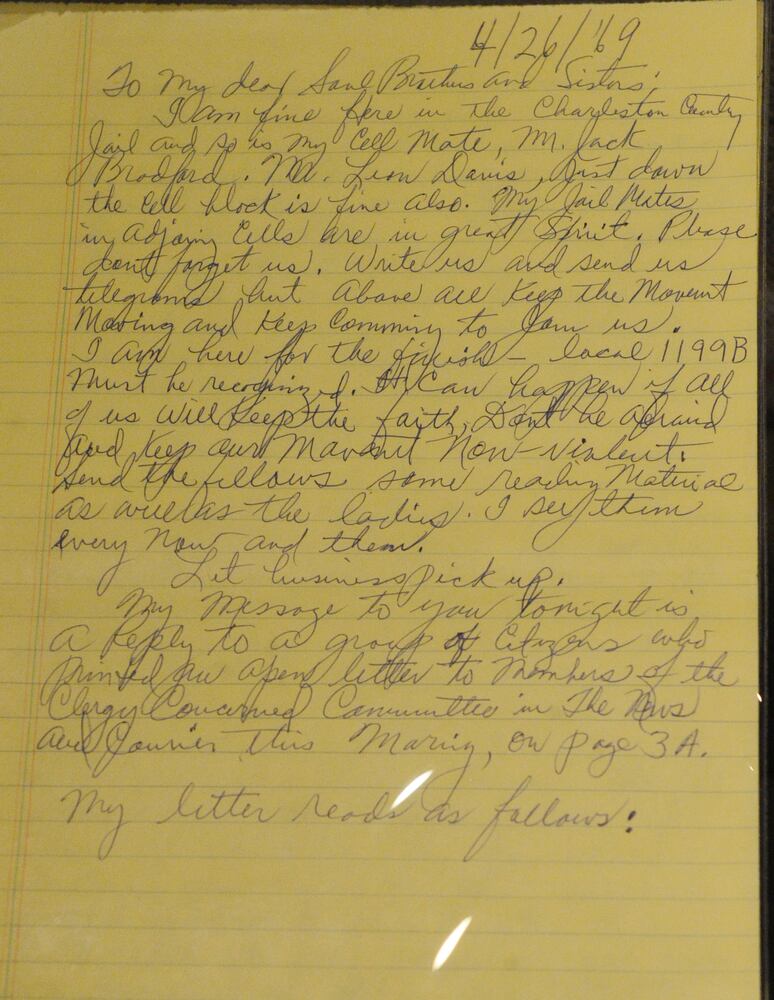 4/26/'69
To My dear Soul Brothers and Sisters,
I am fine here in the Charleston County
Jail and so is my Cell Mate, Mr. Jack
Bradford. Mr. Leon Davis, just down
the Cell block is fine also. My Jail Mates
in Adjoing Cells are in great Spirit. Please
dont forget us. Write us and send us
telegrams but Above all Keep the Movemt
Moving and Keep Comming to Join us.
I Am here for the finish - local 1199B
Must be recognized. It Can happen if All
of us will Keep the faith, Dont be Afraid
And Keep our Movemt Non-violent.
Send the fellows some reading Material
as well as the ladies. I see them
every Now and then.
Let business pick up.
My Message to you tonight is
A Reply to a group of Citizens who
printed an open letter to Members of the
Clergy Concerned Committee in The News
And Courier this Morning, on page 3A.
My letter reads as follows: